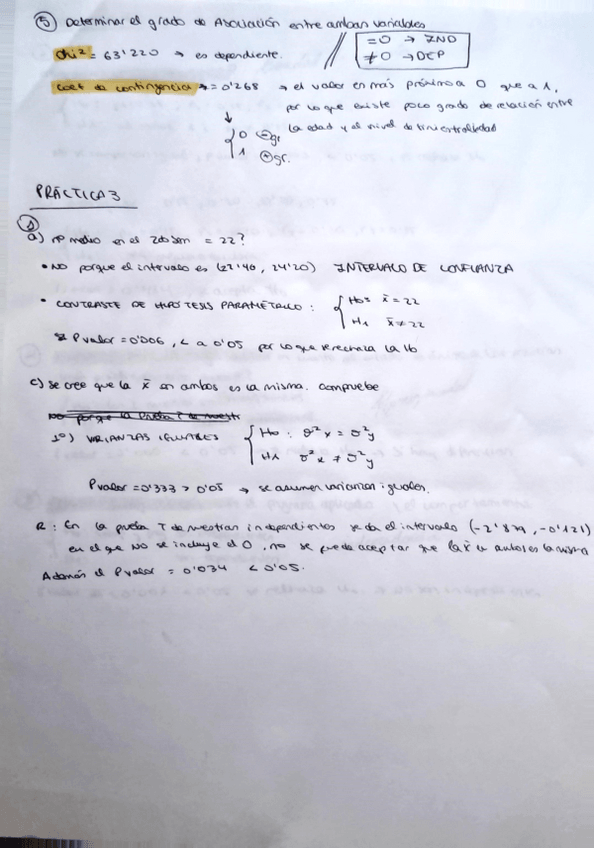 ⑤ Determinar el grado de Asociación entre ambas variables
chi² = 63'220 → es dependiente.
=0 → IND
≠0 → DEP
coef de contingencia = 0'268 → el valor en más próximo a 0 que a 1,
por lo que existe poco grado de relación entre
la edad y el nivel de
0 ⊖ gr
1 ⊕ gr.
PRÁCTICA 3
①
a) nº medio en el = 22?
• NO porque el intervalo es (22'40, 24'20) INTERVALO DE CONFIANZA
• CONTRASTE DE HIPÓTESIS PARAMÉTRICO: { Ho: x̄ = 22
H1 x̄ ≠ 22
P valor = 0'006, < a 0'05 por lo que se rechaza la Ho
c) se cree que la x̄ en ambos es la misma. compruebe
no porque la Prueba T de muestr
1º) VARIANZAS IGUALES { Ho: σ²x = σ²y
H1 σ²x ≠ σ²y
P valor = 0'333 > 0'05 → se asumen varianzas iguales.
R: En la prueba T de muestras independientes se da el intervalo (-2'879, -0'121)
en el que NO se incluye el 0, no se puede aceptar que la x̄ en ambos es la misma
Además el P valor = 0'034 < 0'05.